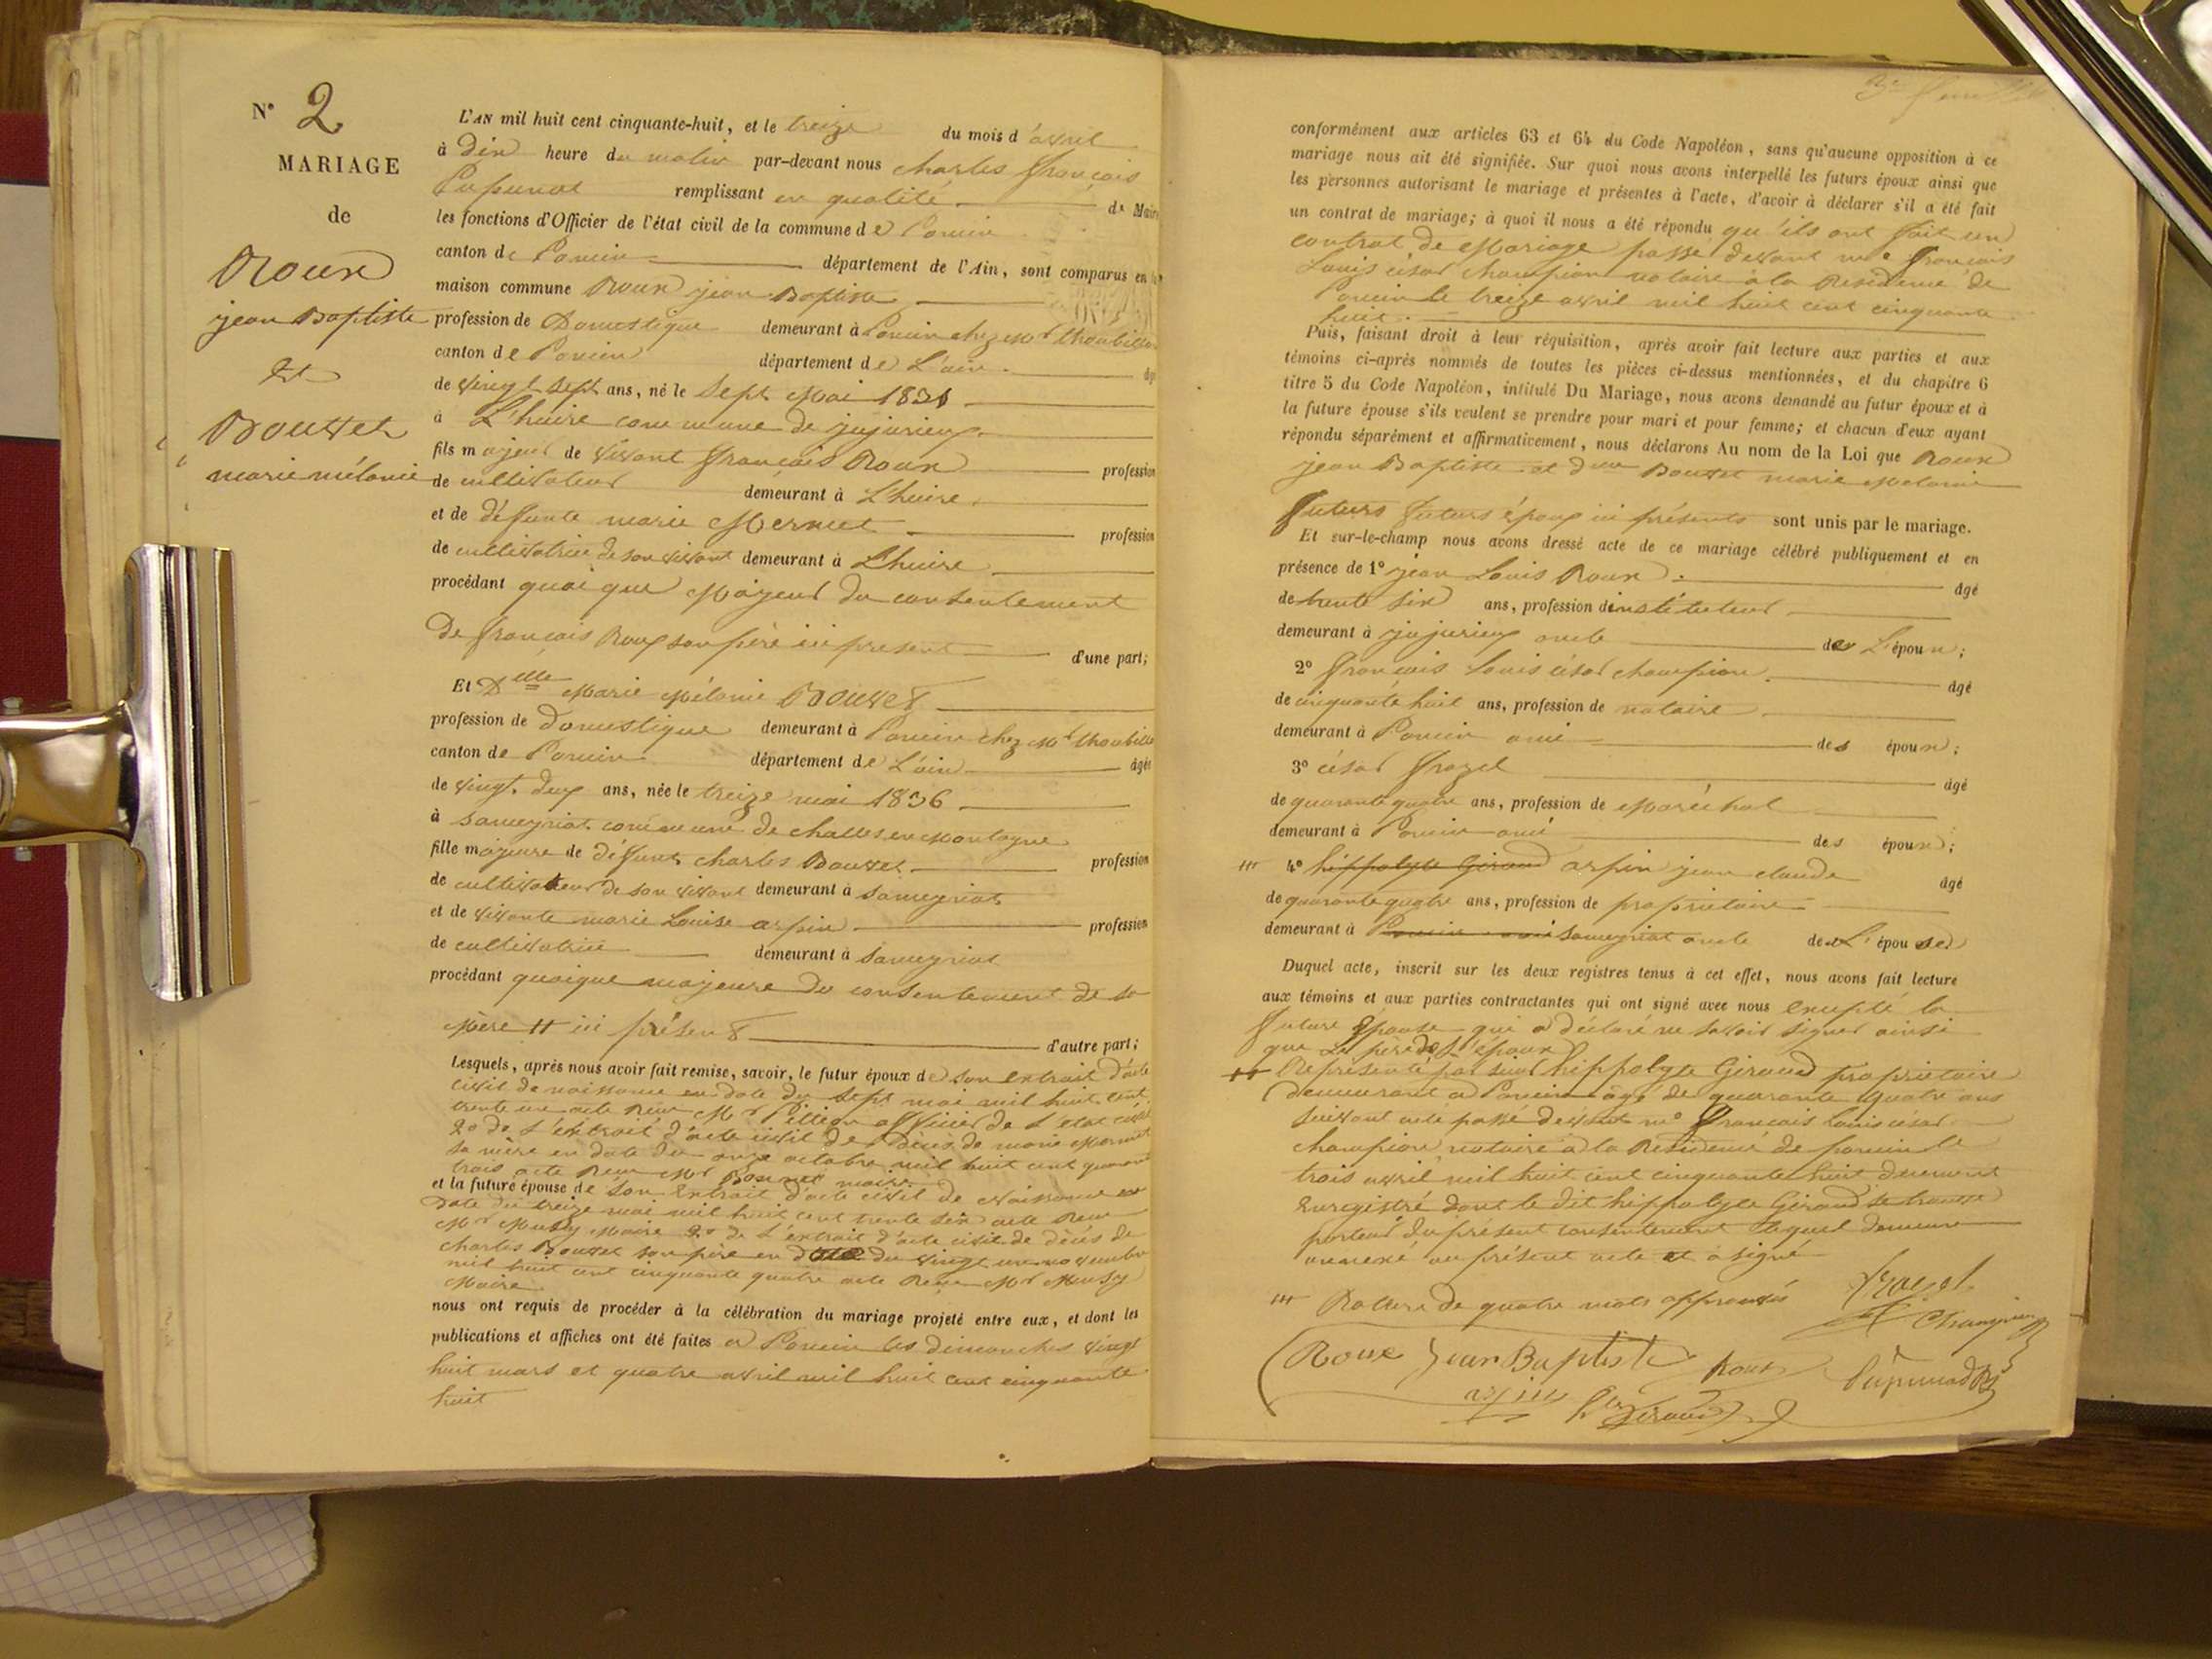 N° 2
MARIAGE
de
Roux
jean Baptiste
Et
Bouvet
marie mélanie
L'AN mil huit cent cinquante-huit, et le treize du mois d'avril
à dix heure du matin par-devant nous charles françois
remplissant en qualité de Maire
les fonctions d'Officier de l'état civil de la commune de Poncin
canton de Poncin département de l'Ain, sont comparus en la
maison commune Roux jean Baptiste
profession de Domestique demeurant à Poncin chez Mr
canton de Poncin département de L'ain
de vingt sept ans, né le sept Mai 1831
à L'huire commune de jujurieux
fils majeur de vivant françois Roux profession
de cultivateur demeurant à L'huire
et de défunte marie Mermet profession
de cultivatrice de son vivant demeurant à L'huire
procédant quoique Majeur du consentement
De françois Roux son père ici présent d'une part;
Et Delle Marie Mélanie Bouvet
profession de domestique demeurant à Poncin chez Mr
canton de Poncin département de L'ain âgée
de vingt deux ans, née le treize mai 1836
à Sameyriat commune de challes en Montagne
fille majeure de défunt charles Bouvet profession
de cultivateur de son vivant demeurant à Sameyriat
et de vivante marie Louise arpin profession
de cultivatrice demeurant à Sameyriat
procédant quoique majeure du consentement de sa
Mère ++ ici présent d'autre part;
Lesquels, après nous avoir fait remise, savoir, le futur époux de son extrait d'acte
civil de naissance en date du sept mai mil huit cent
trente un acte Reçu Mr officier de L'état civil
2° de L'extrait d'acte civil de décès de marie Mermet
sa mère en date du onze octobre mil huit cent quarante
trois acte Reçu Mr Bonnet maire
et la future épouse de son Extrait d'acte civil de Naissance en
Date du treize mai mil huit cent trente six acte Reçu
Mr Maire 2° de L'extrait d'acte civil de décès de
charles Bouvet son père en date du vingt un novembre
mil huit cent cinquante quatre acte Reçu Mr
Maire
nous ont requis de procéder à la célébration du mariage projeté entre eux, et dont les
publications et affiches ont été faites a Poncin les dimanches vingt
huit mars et quatre avril mil huit cent cinquante
huit
conformément aux articles 63 et 64 du Code Napoléon, sans qu'aucune opposition à ce
mariage nous ait été signifiée. Sur quoi nous avons interpellé les futurs époux ainsi que
les personnes autorisant le mariage et présentes à l'acte, d'avoir à déclarer s'il a été fait
un contrat de mariage; à quoi il nous a été répondu qu'ils ont fait un
contrat de Mariage passé devant me françois
Louis césar champion notaire à la Résidence de
Poncin le treize avril mil huit cent cinquante
huit.
Puis, faisant droit à leur réquisition, après avoir fait lecture aux parties et aux
témoins ci-après nommés de toutes les pièces ci-dessus mentionnées, et du chapitre 6
titre 5 du Code Napoléon, intitulé Du Mariage, nous avons demandé au futur époux et à
la future épouse s'ils veulent se prendre pour mari et pour femme; et chacun d'eux ayant
répondu séparément et affirmativement, nous déclarons Au nom de la Loi que Roux
jean Baptiste et Bouvet marie Melanie
futurs futurs époux ici présents sont unis par le mariage.
Et sur-le-champ nous avons dressé acte de ce mariage célébré publiquement et en
présence de 1° jean Louis Roux âgé
de trente six ans, profession d'instituteur
demeurant à jujurieux oncle de L'époux;
2° françois Louis césar champion âgé
de cinquante huit ans, profession de notaire
demeurant à Poncin ami des époux;
3° césar frazel âgé
de quarante quatre ans, profession de Maréchal
demeurant à Poncin ami des époux;
+++ 4° hippolyte Giraud arpin jean claude âgé
de quarante quatre ans, profession de propriétaire
demeurant à Poncin ami Sameyriat oncle de L'épouse
Duquel acte, inscrit sur les deux registres tenus à cet effet, nous avons fait lecture
aux témoins et aux parties contractantes qui ont signé avec nous excepté la
future Épouse qui a déclaré ne savoir signer ainsi
que Le père de L'époux
++ Représentée par sieur hippolyte Giraud propriétaire
Demeurant a Poncin agé de quarante quatre ans
suivant acte passé devant me françois louis césar
champion notaire a la Résidence de poncin le
trois avril mil huit cent cinquante huit duement
Enregistré dont le dit hippolyte Giraud se trouve
porteur du présent consentement lequel demeure
annexé au présent acte et a signé
+++ Rature de quatre mots approuvés
frazel
Champion
Roux Jean Baptiste Roux
arpin Giraud